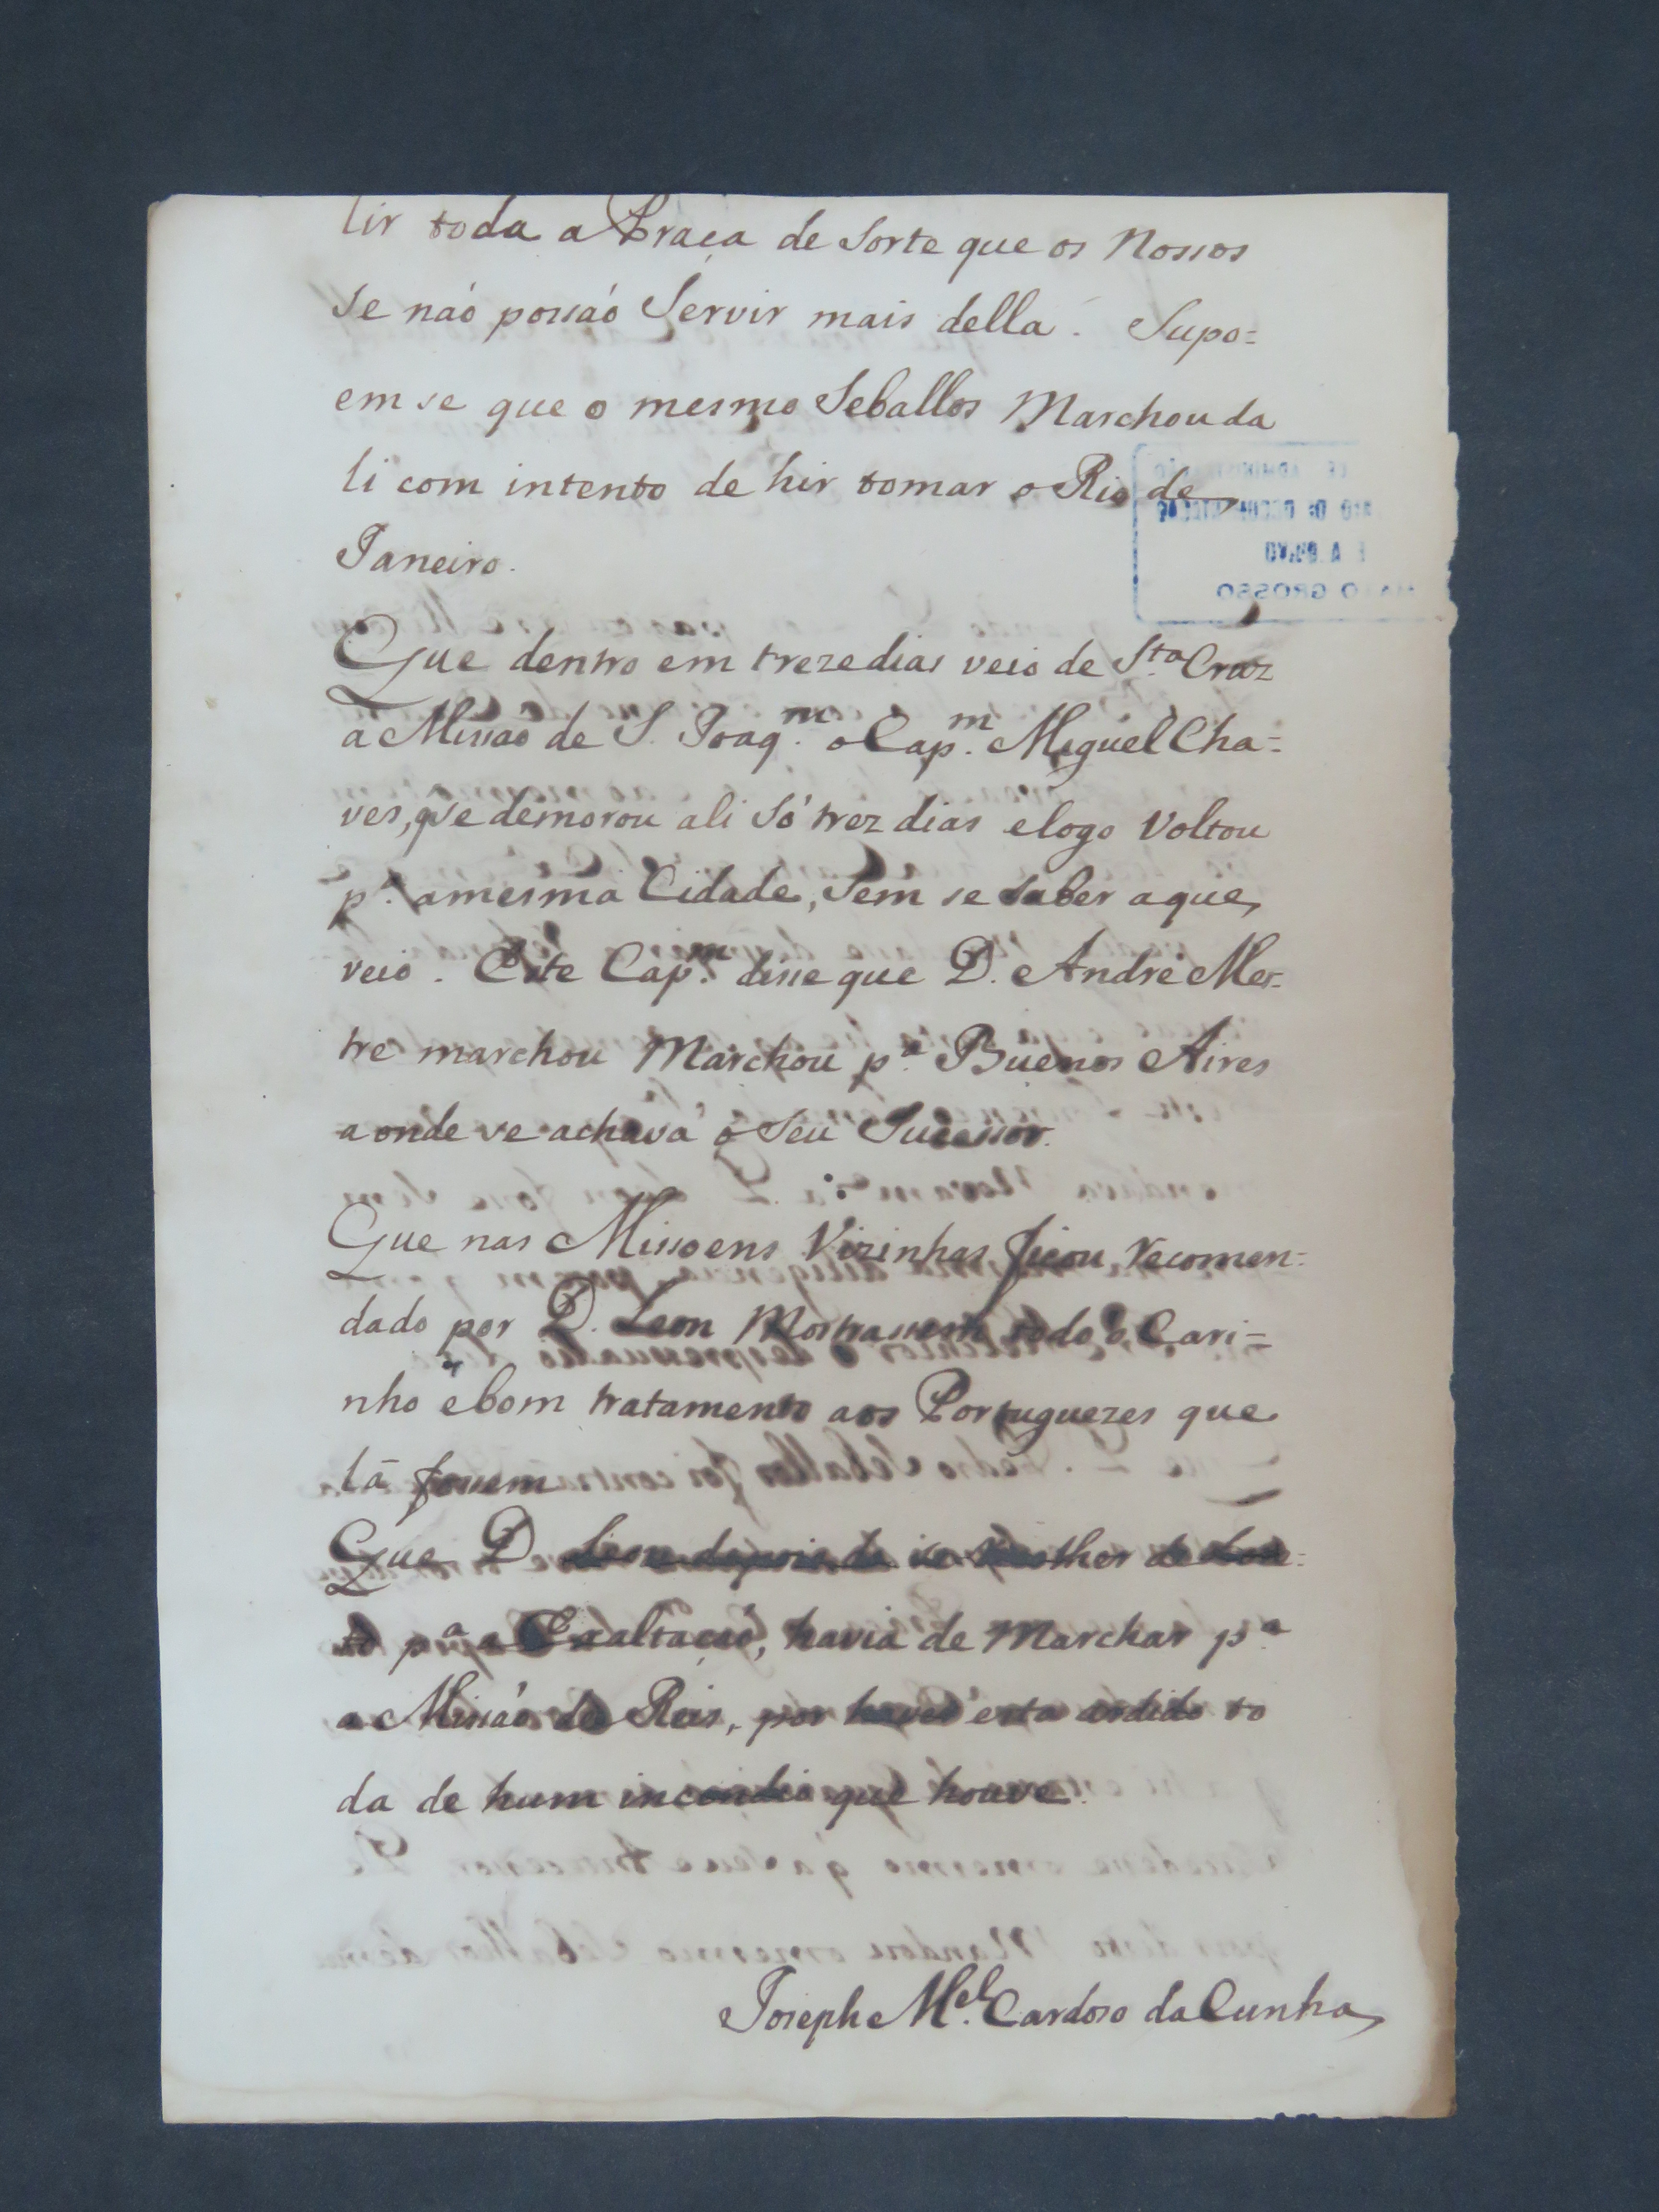 lir toda a Praça de Sorte que os Nossos
se naó possaó Servir mais della. Supo=
em se que o mesmo Seballos Marchou da
li com intento de hir tomar o Rio de
Janeiro.
Que dentro em treze dias veio de S.ta Cruz
a Missaó de S. Joaq.m o Cap.m Miguel Cha=
ves, q̃ se demorou ali Só trez dias e logo Voltou
p.a a mesma Cidade, Sem se saber a que
veio. Este Cap.m disse que D. André Mes-
tre marchou Marchou p.a Buenos Aires
a onde se achava o Seu Sucessor.
Que nas Missoens Vizinhas ficou recomen=
dado por D. Leon Mostrassem todo o Cari=
nho e bom tratamento aos Portuguezes que
lá fossem
Que D. Leon depois de se
p.a a Exaltaçaó, havia de Marchar p.a
a Missaó de Reis, por haver esta ardido to
da de hum incendio que houve.
Joseph M.el Cardoso da Cunha
MATO GROSSO